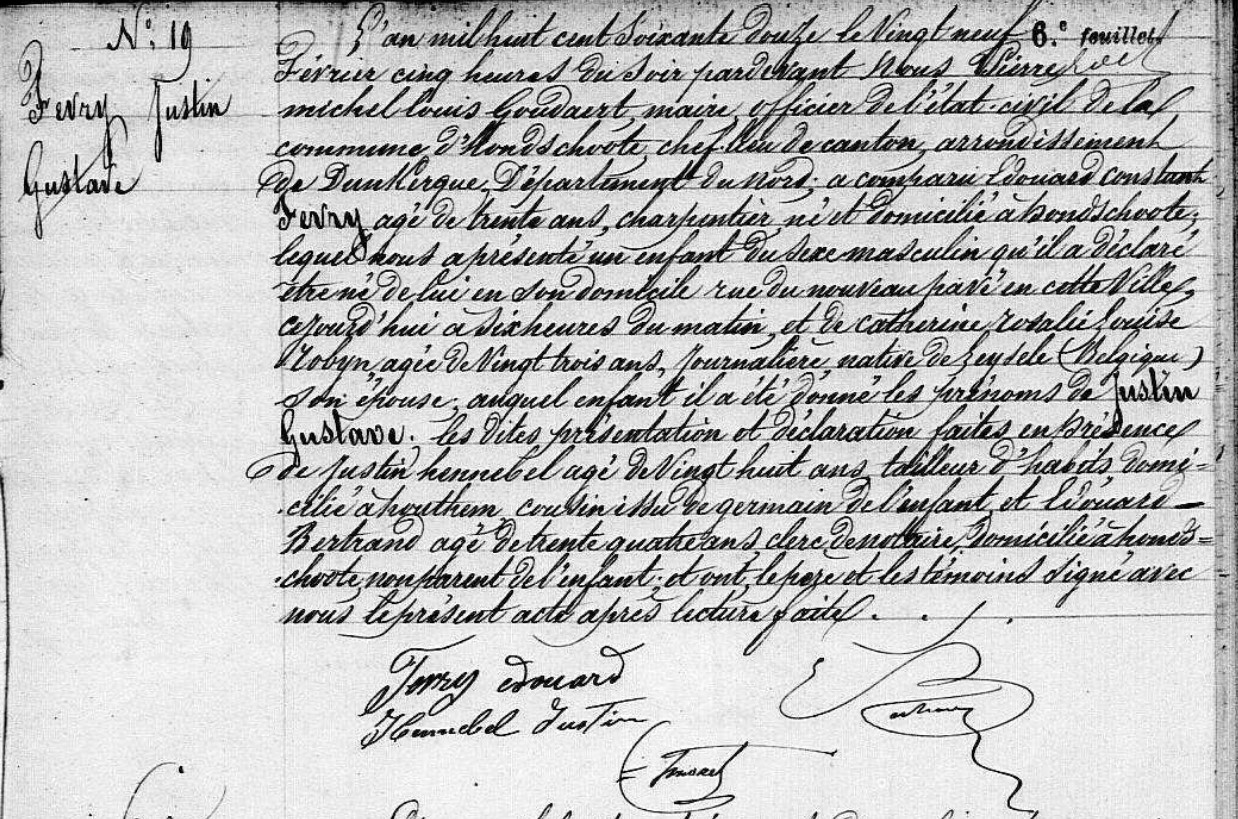 N.º 19
Fevry Justin
Gustave
6.e feuillet
L'an mil huit cent soixante douze le Vingt neuf
Février cinq heures du soir pardevant Nous Pierre
michel Louis Goudaert, maire, officier de l'état-civil de la
commune d'Hondschoote, chef-lieu de canton, arrondissement
de Dunkerque, Département du nord; a comparu Edouard constant
Fevry agé de trente ans, charpentier, né et domicilié à hondschoote,
lequel nous a présenté un enfant du sexe masculin qu'il a déclaré
être né de lui en son domicile rue du nouveau pavé en cette Ville,
cejourd'hui à six heures du matin, et de catherine, rosalie Louise
Robyn, agée de Vingt trois ans, journalière, native de Leysele (Belgique)
son épouse; auquel enfant il a été donné les prénoms de Justin
Gustave. les dites présentation et déclaration faites en présence
de Justin hennebel agé de Vingt huit ans, tailleur d'habits domi=
cilié à houthem cousin issu de germain de l'enfant, et Edouard
Bertrand agé de trente quatre ans, clerc de notaire, Domicilié à honds=
choote, non parent de l'enfant; et ont, le père et les témoins signé avec
nous le présent acte après lecture faite.
Fevry edouard
Hennebel Justin